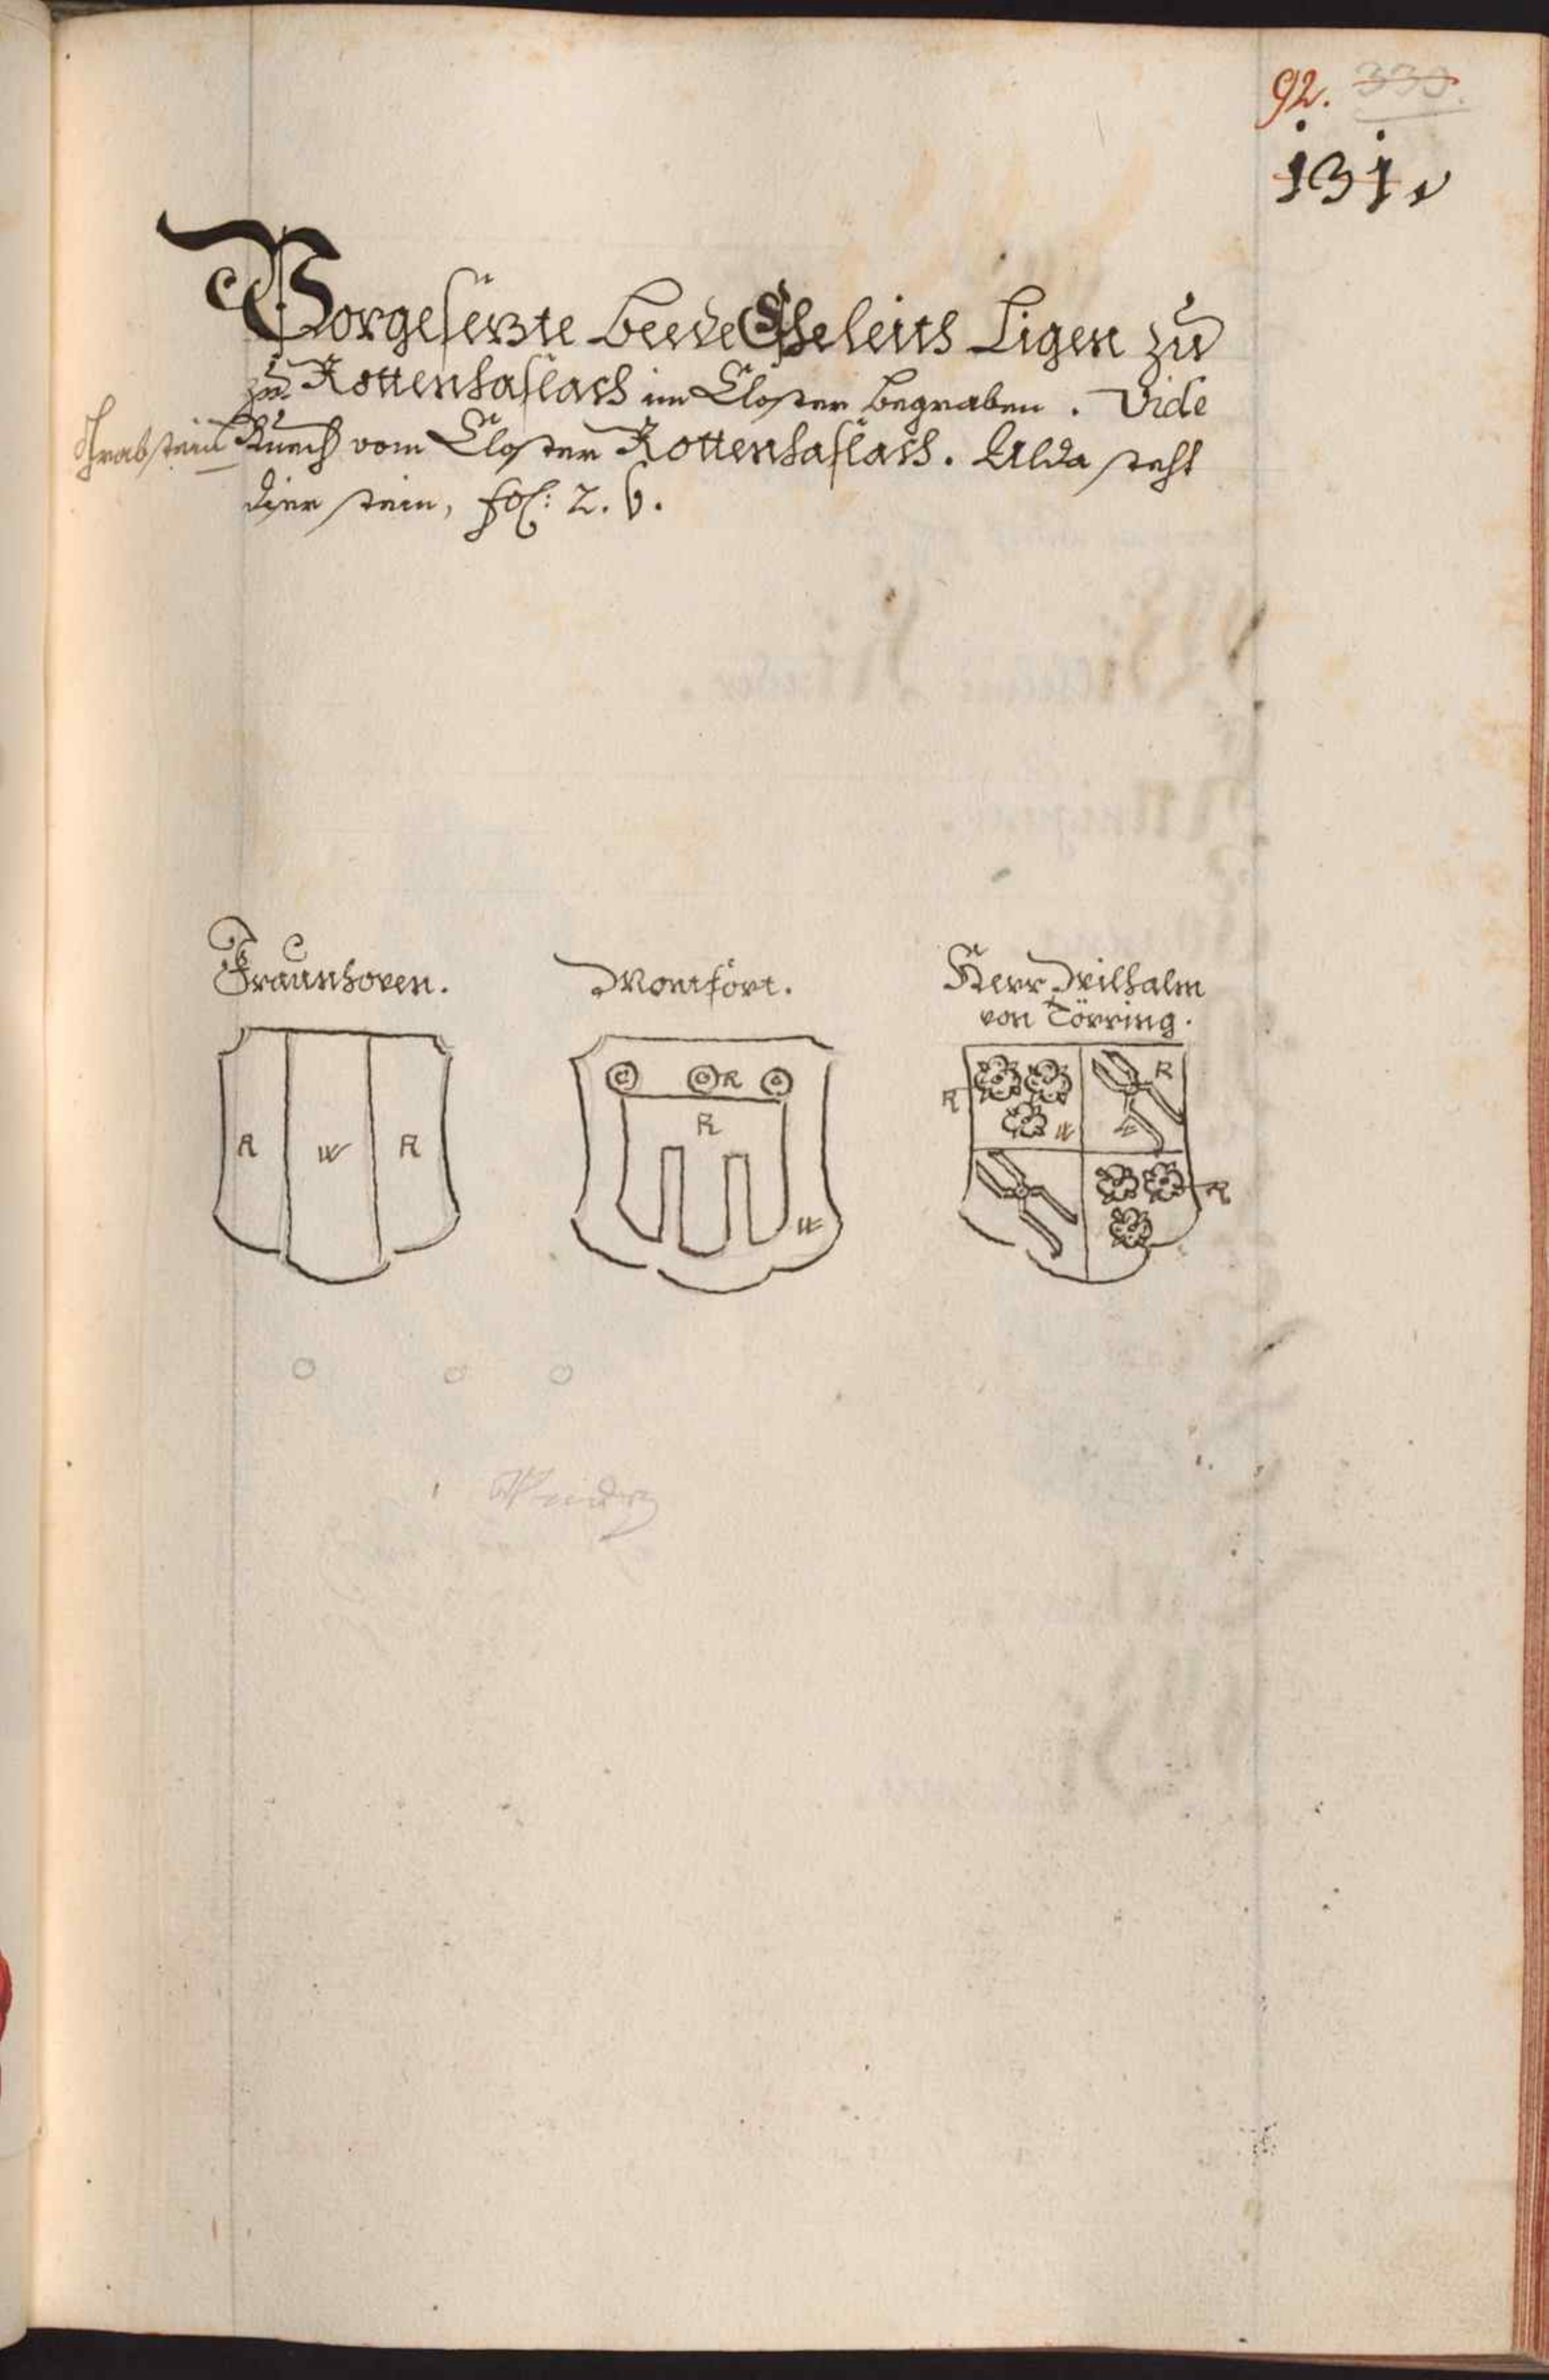 92. 330.
131
Vorgesetzte beede Eheleüth Ligen zu
zu Rottenhaslach im Closter begraben. Vide
Grabstain Buech vom Closter Rottenhaslach. Alda steht
diser stain, fol: 2. b.
Fraunhoven.
Montfort.
Herr Wilhalm
von Törring.
R W R
R
R
W
R R
W
R